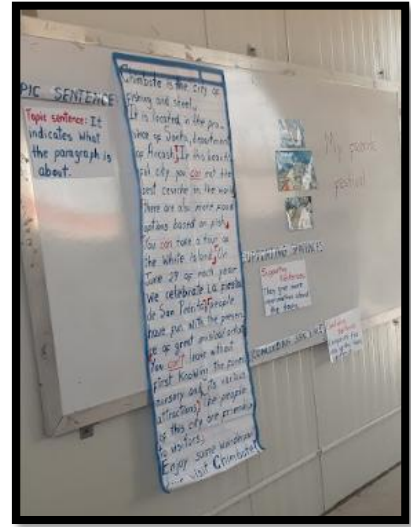 TOPIC SENTENCE
Topic sentence: It
indicates what
the paragraph is
about.
Chimbote is the city of
fishing and steel.
It is located in the pro-
vince of Santa, department
of Ancash. In this beauti-
ful city, you can eat the
best ceviche in the world
There are also more food
options based on fish.
You can take a tour of
the White Island. On
June 29 of each year
we celebrate La
de San Pedrito, people
have fun with the presen-
ce of great musical artists
You can't leave without
first knowing the
nursery and its various
attractions. The people
of this city are friendly
to visitors.
Enjoy some wonderful
visit Chimbote!
My
festival
SUPPORTING SENTENCES
Supporting
Sentences:
They give more
information about
the topic.
CONCLUDING SENTENCE